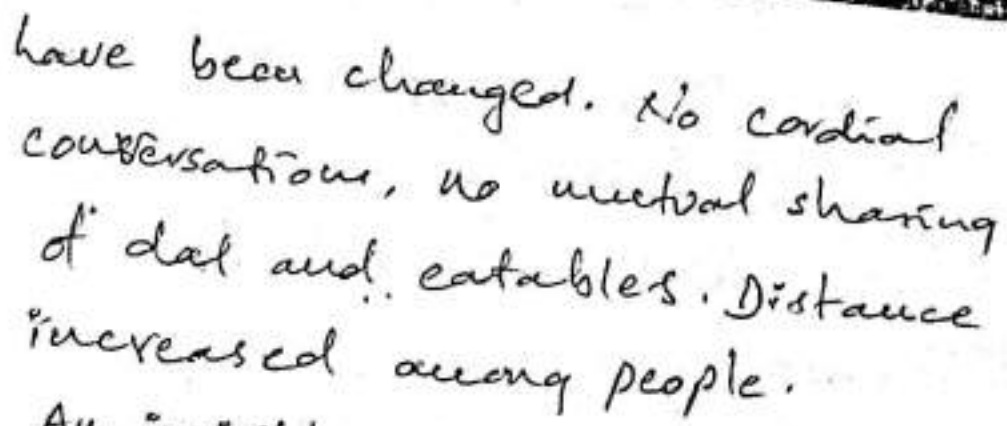 have been changed. No cordial
conversations, no mutual sharing
of dal and eatables. Distance
increased among people.